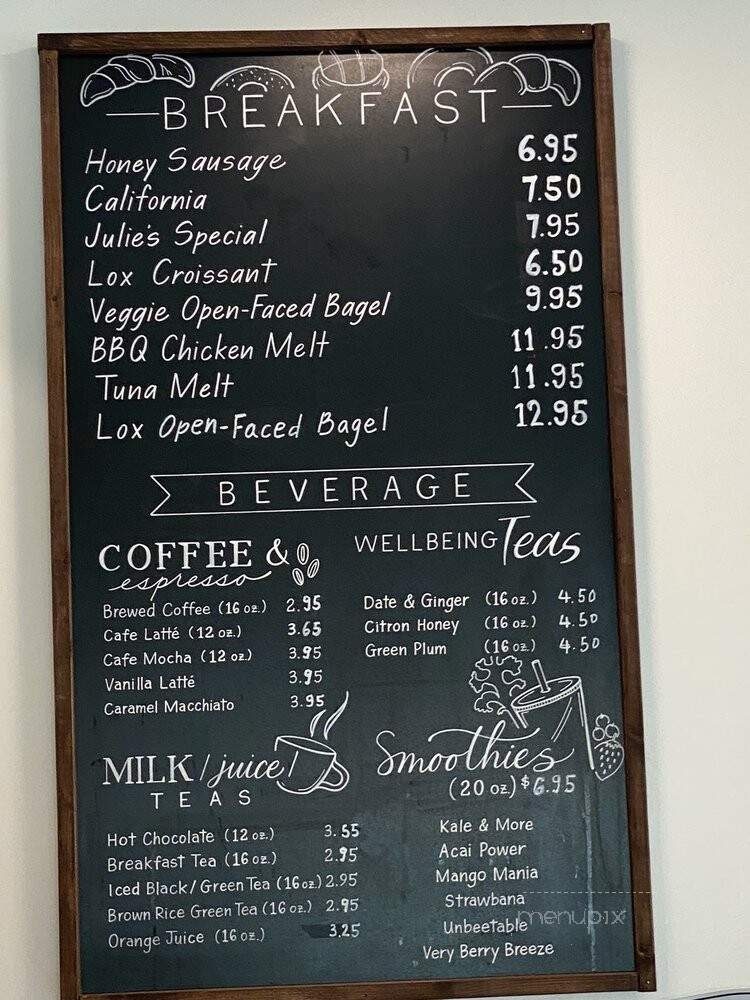 BREAKFAST
Honey Sausage 6.95
California 7.50
Julie's Special 7.95
Lox Croissant 6.50
Veggie Open-Faced Bagel 9.95
BBQ Chicken Melt 11.95
Tuna Melt 11.95
Lox Open-Faced Bagel 12.95
BEVERAGE
COFFEE &
espresso
Brewed Coffee (16 oz.) 2.95
Cafe Latté (12 oz.) 3.65
Cafe Mocha (12 oz.) 3.95
Vanilla Latté 3.95
Caramel Macchiato 3.95
WELLBEING Teas
Date & Ginger (16 oz.) 4.50
Citron Honey (16 oz.) 4.50
Green Plum (16 oz.) 4.50
MILK / juice /
TEAS
Hot Chocolate (12 oz.) 3.55
Breakfast Tea (16 oz.) 2.95
Iced Black/Green Tea (16 oz.) 2.95
Brown Rice Green Tea (16 oz.) 2.95
Orange Juice (16 oz.) 3.25
Smoothies
(20 oz.) $6.95
Kale & More
Acai Power
Mango Mania
Strawbana
Unbeetable
Very Berry Breeze
menupix